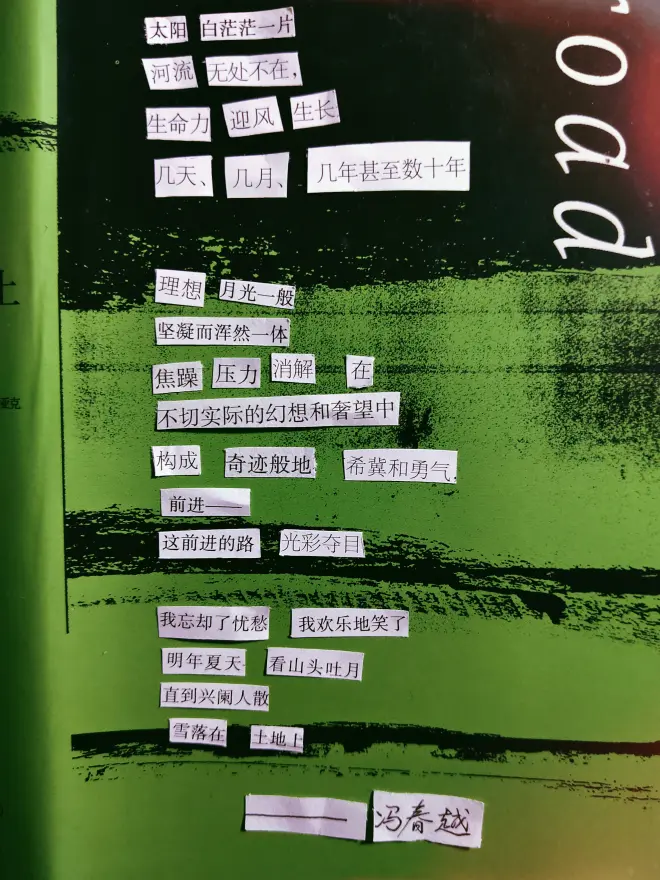 太阳 白茫茫一片
河流 无处不在，
生命力 迎风 生长
几天、 几月、 几年甚至数十年
理想 月光一般
坚凝而浑然一体
焦躁 压力 消解 在
不切实际的幻想和奢望中
构成 奇迹般地 希冀和勇气.
前进——
这前进的路 光彩夺目
我忘却了忧愁 我欢乐地笑了
明年夏天 看山头吐月
直到兴阑人散
雪落在 土地上
——冯春越
oad
上